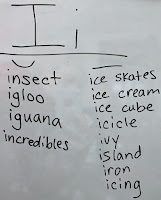 I i
insect
igloo
iguana
incredibles
ice skates
ice cream
ice cube
icicle
ivy
island
iron
icing